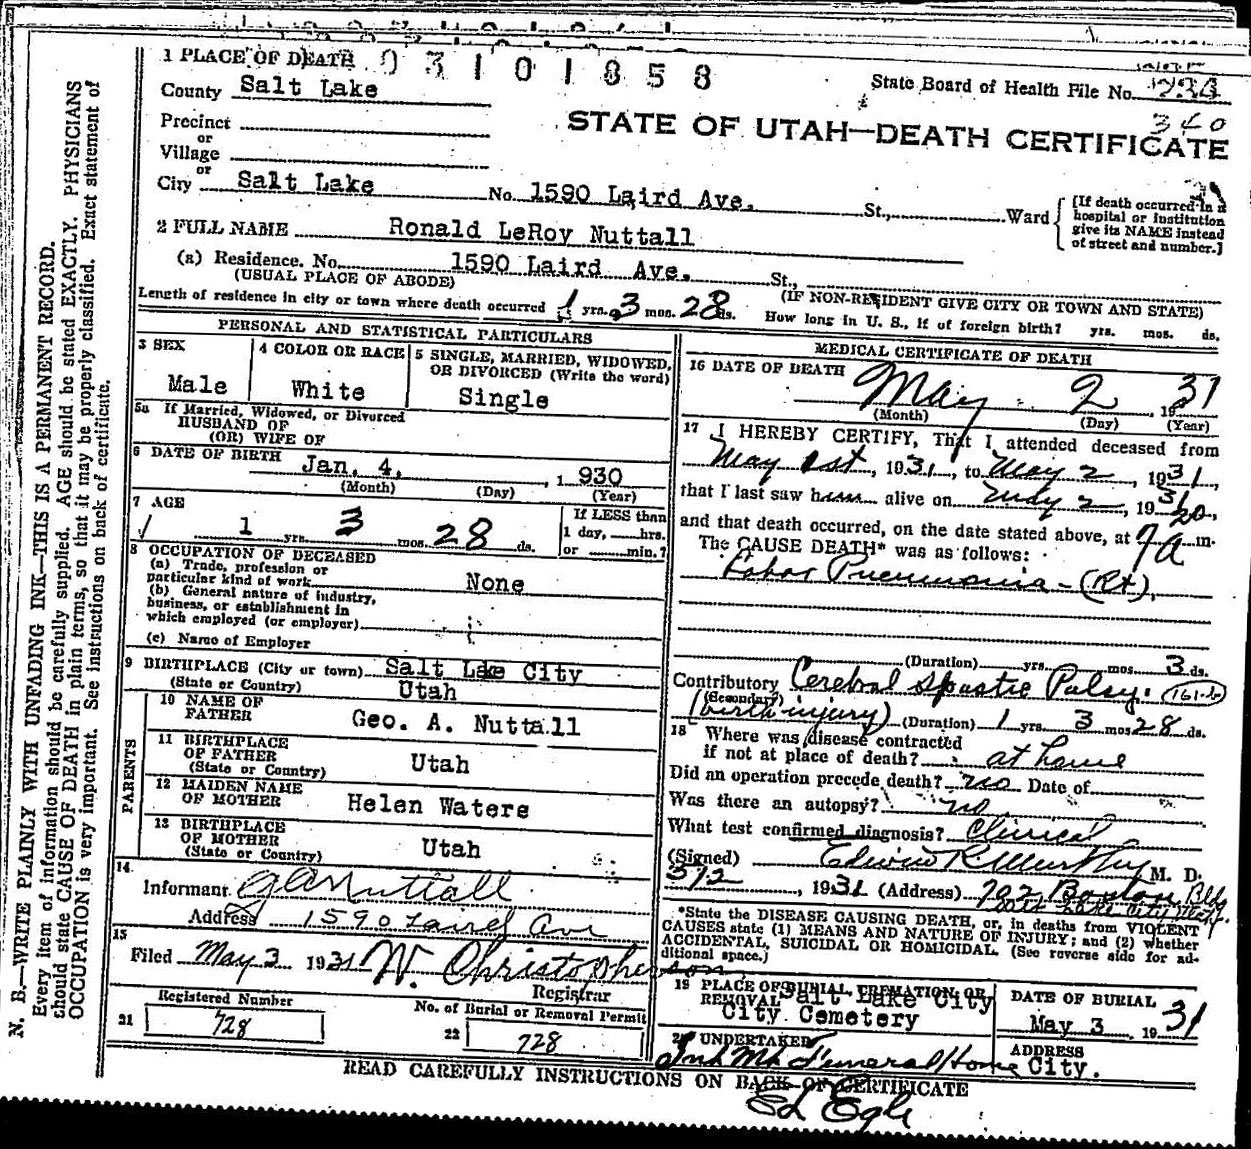 1 PLACE OF DEATH 03101858
State Board of Health File No. 734
County Salt Lake
340
STATE OF UTAH—DEATH CERTIFICATE
Precinct
or
Village
or
City Salt Lake No. 1590 Laird Ave. St., Ward
[If death occurred in a
hospital or institution
give its NAME instead
of street and number.]
2 FULL NAME Ronald LeRoy Nuttall
(a) Residence. No. 1590 Laird Ave. St.,
(USUAL PLACE OF ABODE)
(IF NON-RESIDENT GIVE CITY OR TOWN AND STATE)
Length of residence in city or town where death occurred 1 yrs. 3 mos. 28 ds. How long in U. S., if of foreign birth? yrs. mos. ds.
PERSONAL AND STATISTICAL PARTICULARS
3 SEX
Male
4 COLOR OR RACE
White
5 SINGLE, MARRIED, WIDOWED,
OR DIVORCED (Write the word)
Single
5a If Married, Widowed, or Divorced
HUSBAND OF
(OR) WIFE OF
6 DATE OF BIRTH
Jan. 4, , 1 930
(Month) (Day) (Year)
7 AGE
1 yrs. 3 mos. 28 ds.
If LESS than
1 day, hrs.
or min.?
8 OCCUPATION OF DECEASED
(a) Trade, profession or
particular kind of work None
(b) General nature of industry,
business, or establishment in
which employed (or employer)
(c) Name of Employer
9 BIRTHPLACE (City or town) Salt Lake City
(State or Country) Utah
PARENTS
10 NAME OF
FATHER Geo. A. Nuttall
11 BIRTHPLACE
OF FATHER
(State or Country) Utah
12 MAIDEN NAME
OF MOTHER Helen Waters
13 BIRTHPLACE
OF MOTHER
(State or Country) Utah
14
Informant G A Nuttall
Address 1590 Laird Ave
15
Filed May 3 1931 W. Christopherson
Registrar
Registered Number
21 728
No. of Burial or Removal Permit
22 728
MEDICAL CERTIFICATE OF DEATH
16 DATE OF DEATH
May 2 , 19 31
(Month) (Day) (Year)
17 I HEREBY CERTIFY, That I attended deceased from
May 1st , 1931, to May 2 , 1931,
that I last saw him alive on May 2 , 1931,
and that death occurred, on the date stated above, at 7 20 a m.
The CAUSE DEATH* was as follows:
Lobar Pneumonia - (Rt),
(Duration) yrs. mos. 3 ds.
Contributory Cerebral Spastic Palsy. (161-b)
(Secondary)
(birth injury) (Duration) 1 yrs. 3 mos. 28 ds.
18 Where was disease contracted
if not at place of death? at home
Did an operation precede death? no Date of
Was there an autopsy? no
What test confirmed diagnosis? Clinical
(Signed) Edwin R. Murphy M. D.
5/2 , 1931 (Address) 702 Boston Bldg
Salt Lake City Utah.
*State the DISEASE CAUSING DEATH, or, in deaths from VIOLENT
CAUSES state (1) MEANS AND NATURE OF INJURY; and (2) whether
ACCIDENTAL, SUICIDAL OR HOMICIDAL. (See reverse side for ad-
ditional space.)
19 PLACE OF BURIAL, CREMATION OR
REMOVAL Salt Lake City
City Cemetery
DATE OF BURIAL
May 3 , 19 31
20 UNDERTAKER
Funeral Home
ADDRESS
City.
READ CAREFULLY INSTRUCTIONS ON BACK OF CERTIFICATE
Ed Egle
N. B.—WRITE PLAINLY WITH UNFADING INK—THIS IS A PERMANENT RECORD.
Every item of information should be carefully supplied. AGE should be stated EXACTLY. PHYSICIANS
should state CAUSE OF DEATH in plain terms, so that it may be properly classified. Exact statement of
OCCUPATION is very important. See instructions on back of certificate.